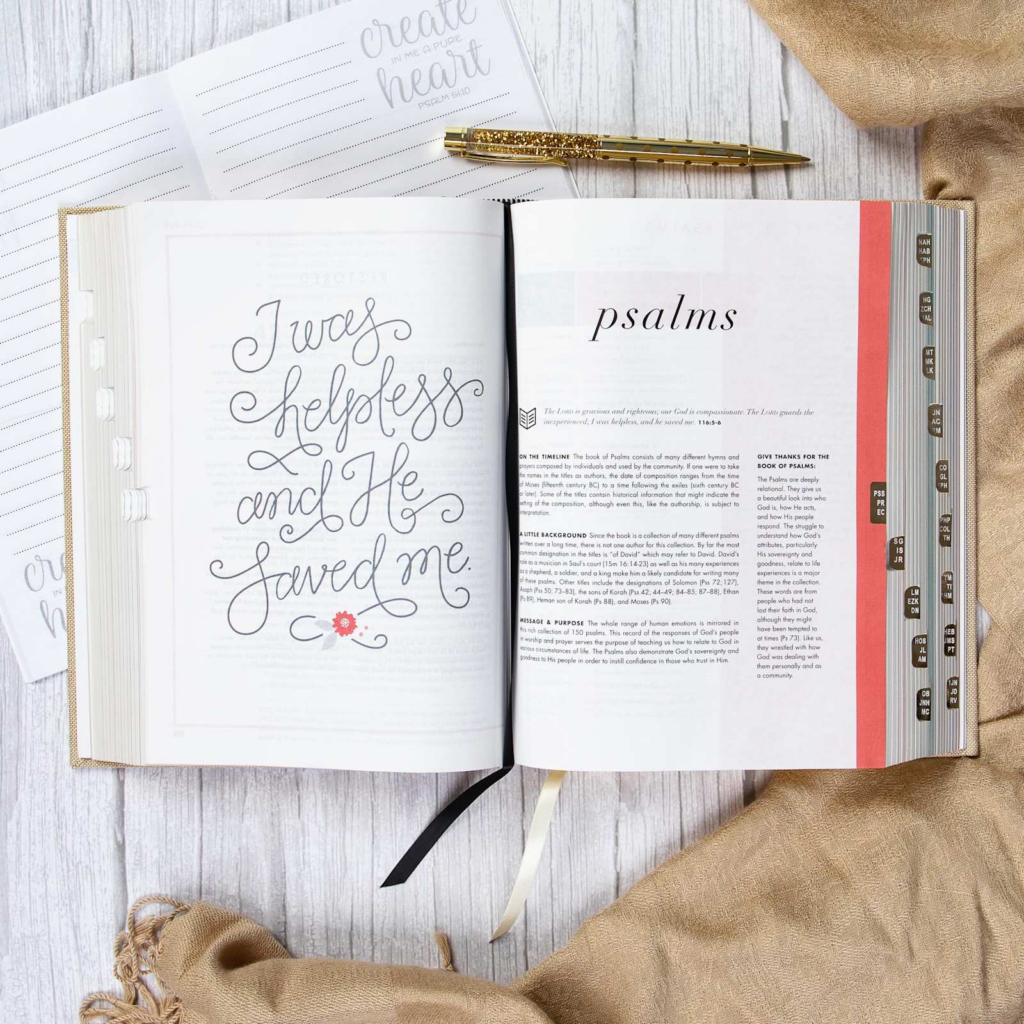 create
IN ME A PURE
heart
PSALM 51:10
I was
helpless
and He
saved me.
psalms
The LORD is gracious and righteous; our God is compassionate. The LORD guards the
inexperienced; I was helpless, and he saved me. 116:5-6
ON THE TIMELINE The book of Psalms consists of many different hymns and
prayers composed by individuals and used by the community. If one were to take
the names in the titles as authors, the date of composition ranges from the time
of Moses (fifteenth century BC) to a time following the exiles (sixth century BC
or later). Some of the titles contain historical information that might indicate the
setting of the composition, although even this, like the authorship, is subject to
interpretation.
A LITTLE BACKGROUND Since the book is a collection of many different psalms
written over a long time, there is not one author for this collection. By far the most
common designation in the titles is "of David" which may refer to David. David's
role as a musician in Saul's court (1Sm 16:14-23) as well as his many experiences
as a shepherd, a soldier, and a king make him a likely candidate for writing many
of these psalms. Other titles include the designations of Solomon (Pss 72; 127),
Asaph (Pss 50; 73–83), the sons of Korah (Pss 42; 44–49; 84–85; 87–88), Ethan
(Ps 89), Heman son of Korah (Ps 88), and Moses (Ps 90).
MESSAGE & PURPOSE The whole range of human emotions is mirrored in
this rich collection of 150 psalms. This record of the responses of God's people
in worship and prayer serves the purpose of teaching us how to relate to God in
various circumstances of life. The Psalms also demonstrate God's sovereignty and
goodness to His people in order to instill confidence in those who trust in Him.
GIVE THANKS FOR THE
BOOK OF PSALMS:
The Psalms are deeply
relational. They give us
a beautiful look into who
God is, how He acts,
and how His people
respond. The struggle to
understand how God's
attributes, particularly
His sovereignty and
goodness, relate to life
experiences is a major
theme in the collection.
These words are from
people who had not
lost their faith in God,
although they might
have been tempted to
at times (Ps 73). Like us,
they wrestled with how
God was dealing with
them personally and as
a community.
NAH
HAB
ZPH
HG
ZCH
MAL
MT
MK
LK
JN
AC
RM
CO
GL
EPH
PSS
PR
EC
PHP
COL
TH
SG
IS
JR
TM
TI
PHM
LM
EZK
DN
HEB
JMS
PT
HOS
JL
AM
1JN
JD
RV
OB
JNH
MC